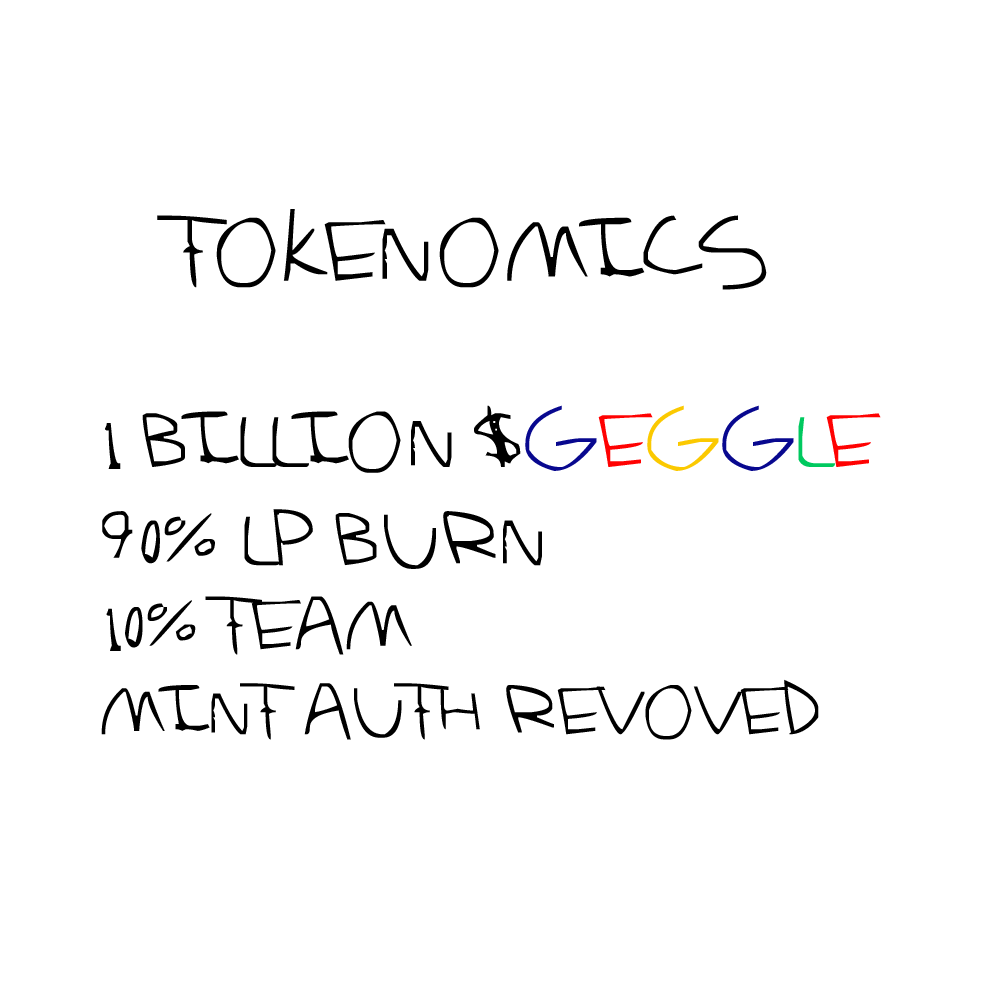 TOKENOMICS
1 BILLION $GEGGLE
90% LP BURN
10% TEAM
MINT AUTH REVOVED